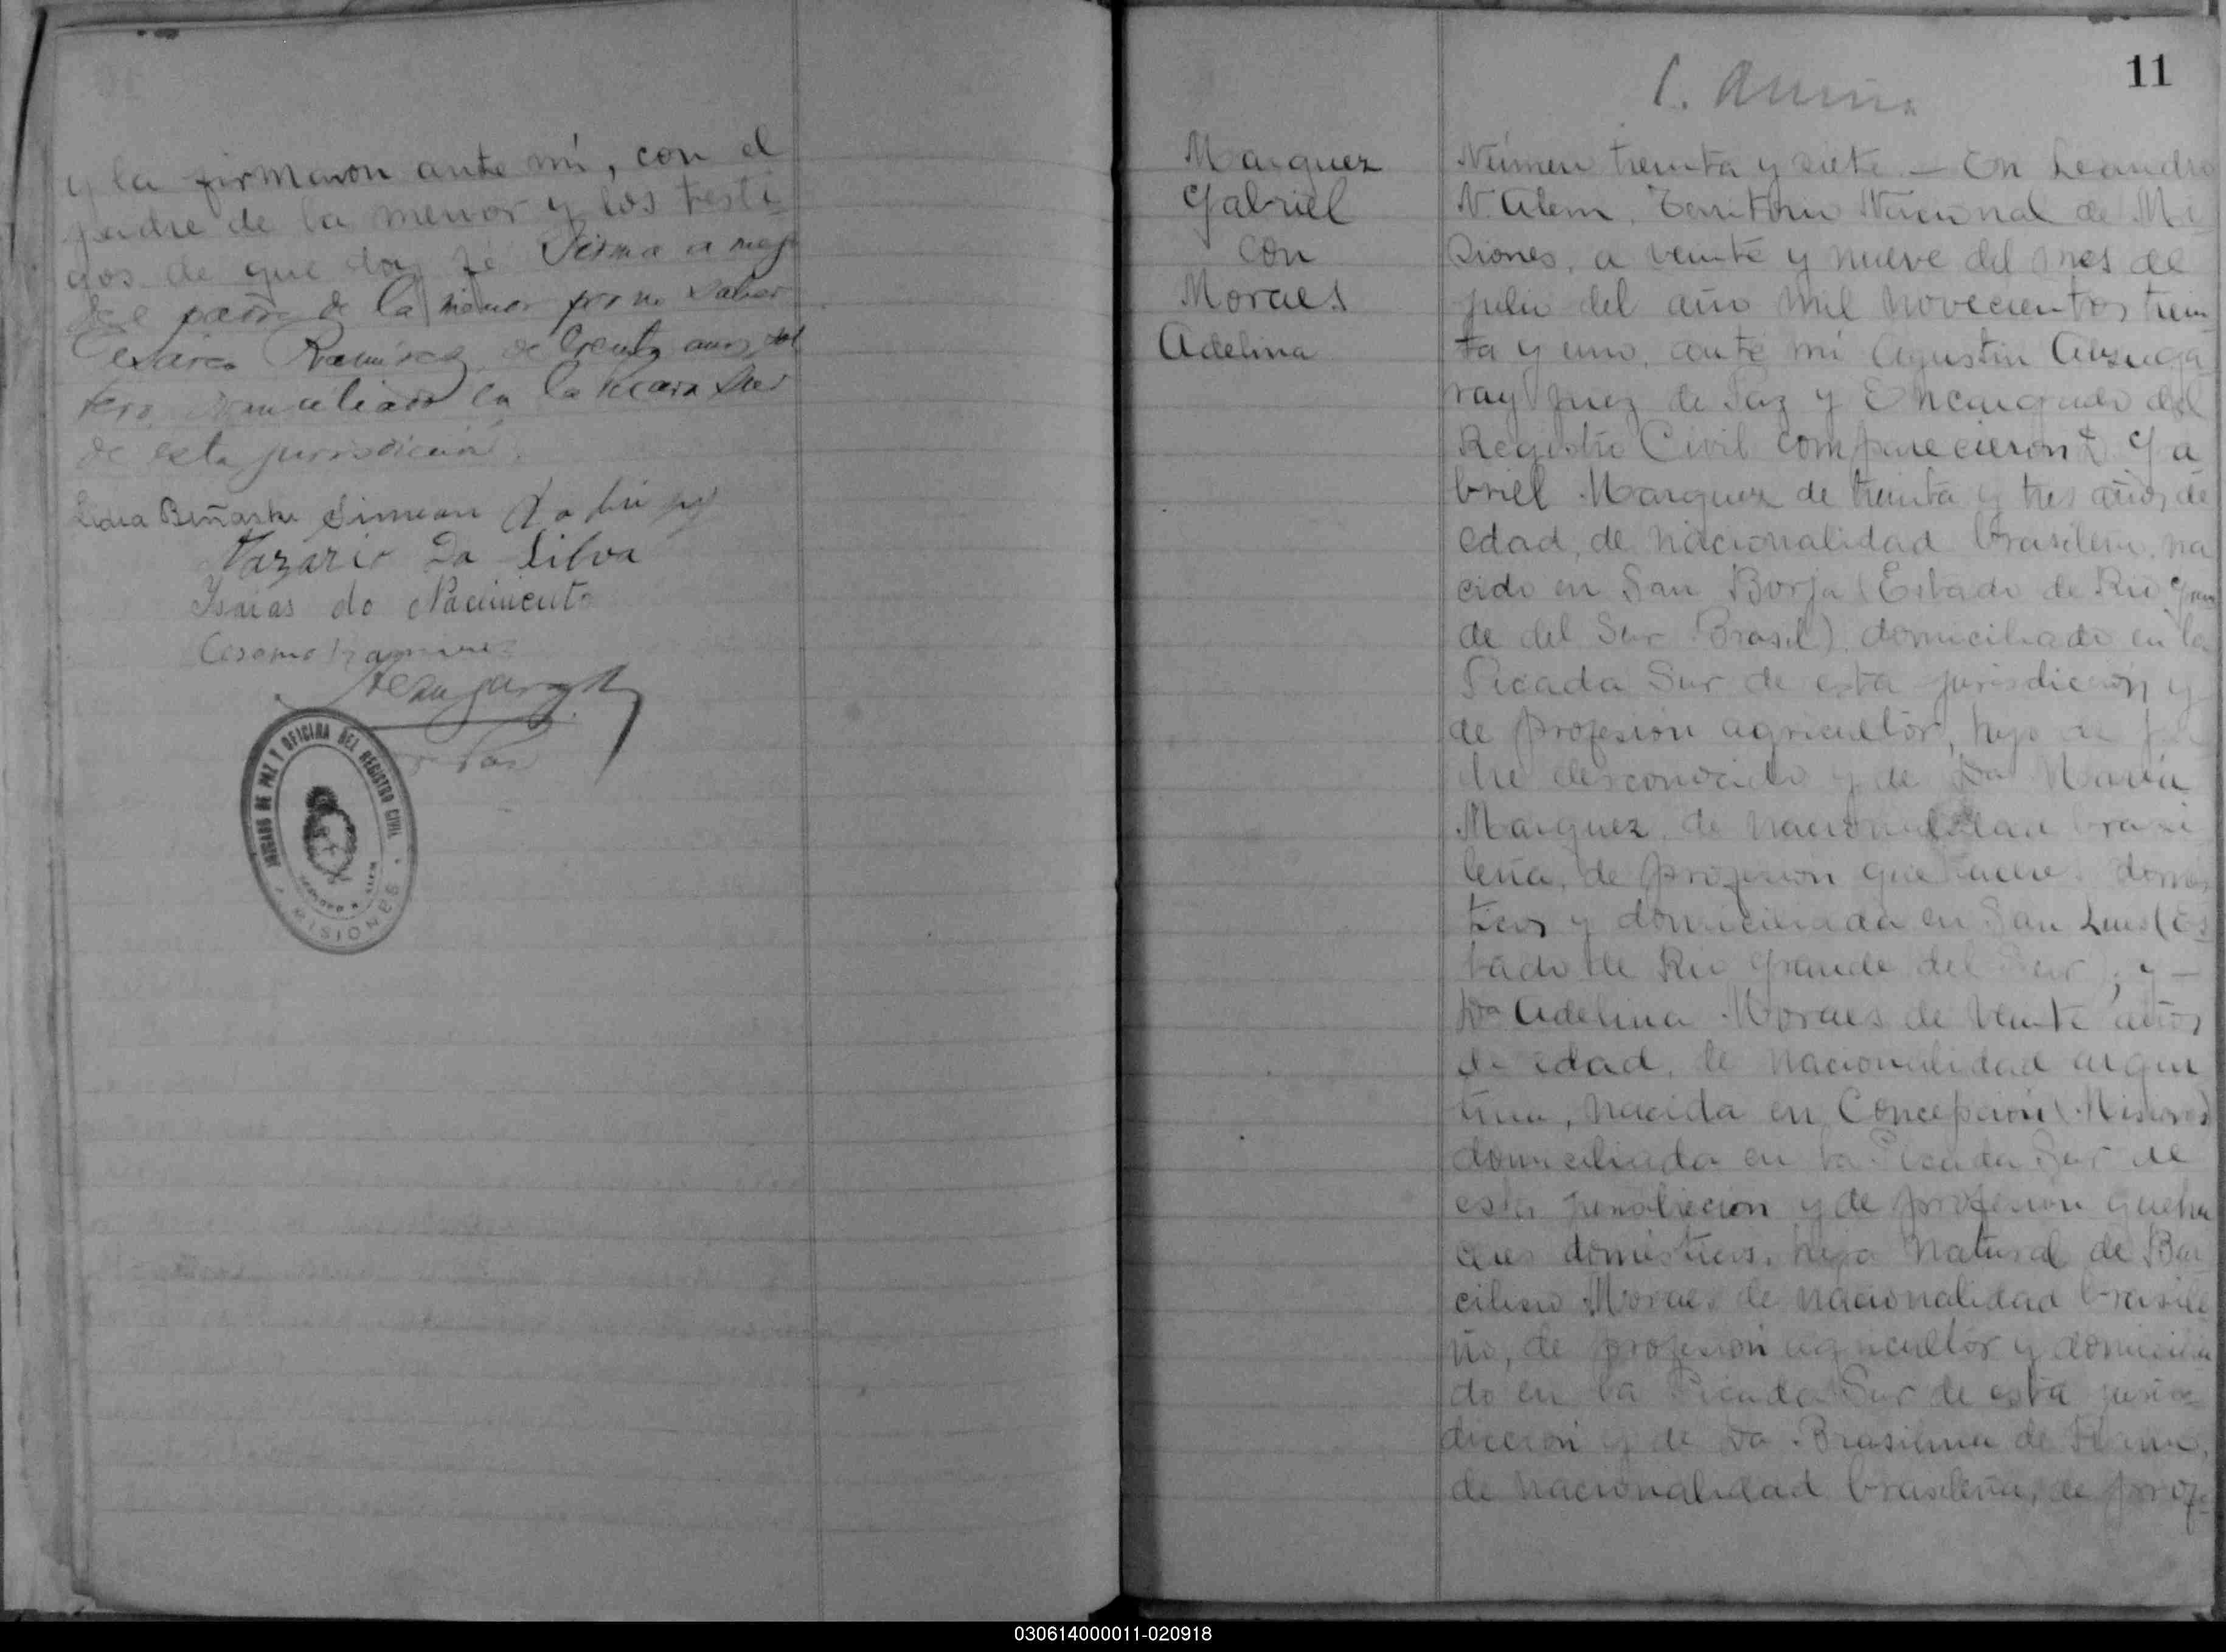 y la firmaron ante mí, con el
padre de la menor y los testi-
gos de que doy fé Firma a rueg
del padre de la menor por no saber
Cesareo Ramírez de treinta años, sol
tero domiciliado en la Picada Sur
de esta jurisdicción.
Lidia Simeon
Nazario Da Silva
Isaias do Nacimiento
Cesareo Ramirez
JUZGADO DE PAZ Y OFICINA DEL REGISTRO CIVIL
LEANDRO N. ALEM
MISIONES
11
Marquez
Gabriel
con
Moraes
Adelina
Número treinta y siete — En Leandro
N. Alem, Territorio Nacional de Mi-
siones, a veinte y nueve del mes de
julio del año mil novecientos trein
ta y uno, ante mí Agustin
Juez de Paz y Encargado del
Registro Civil comparecieron: Ga
briel Marquez de treinta y tres años de
edad, de nacionalidad brasilera, na
cido en San Borja (Estado de Rio Gran
de del Sur Brasil) domiciliado en la
Picada Sur de esta jurisdicción y
de profesión agricultor, hijo de pa
dre desconocido y de Da María
Marquez, de nacionalidad brasi
leña, de profesión quehaceres domés
ticos y domiciliada en San Luis (Es
tado de Rio Grande del Sur); y —
Da Adelina Moraes de veinte años
de edad, de nacionalidad argen
tina, nacida en Concepción (Misiones)
domiciliada en la Picada Sur de
esta jurisdicción y de profesión queha
ceres domésticos, hija natural de
Moraes de nacionalidad brasile
ño, de profesión agricultor y domicilia
do en la Picada Sur de esta juris-
dicción y de Da Brasilina de
de nacionalidad brasileña, de profe-
030614000011-020918